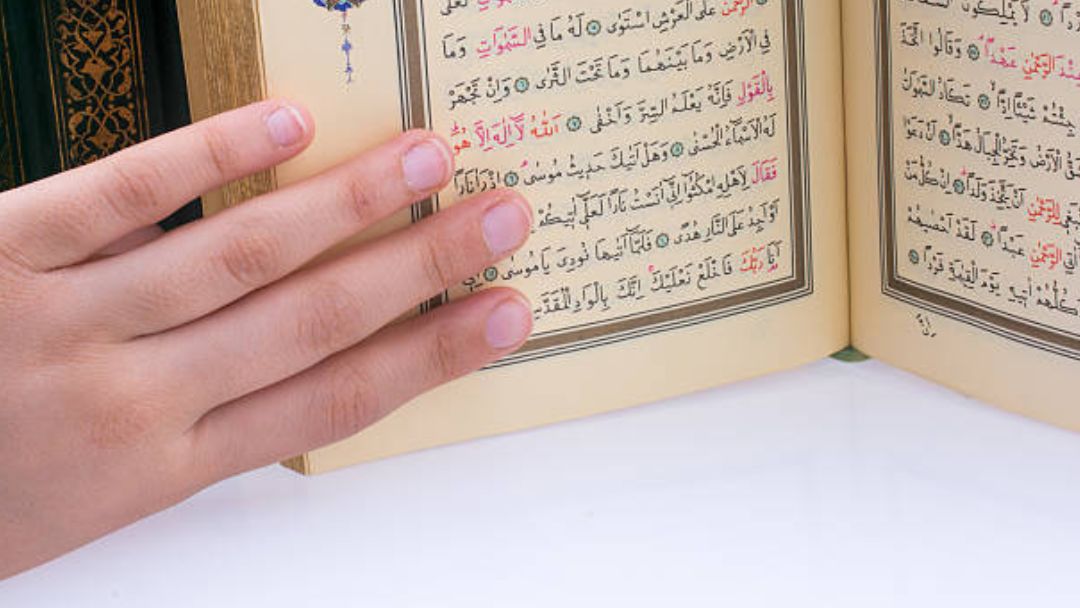 لَا يَمْلِكُونَ
عِنْدَ الرَّحْمٰنِ عَهْدًا وَقَالُوا اتَّخَذَ
جِئْتُمْ شَيْـًٔا اِدًّا تَكَادُ السَّمٰوَاتُ
الْاَرْضُ وَتَخِرُّ الْجِبَالُ هَدًّا اَنْ دَعَوْا
لِلرَّحْمٰنِ اَنْ يَتَّخِذَ وَلَدًا اِنْ كُلُّ مَنْ
اٰتِى الرَّحْمٰنِ عَبْدًا لَقَدْ اَحْصٰيهُمْ
وَكُلُّهُمْ اٰتِيهِ يَوْمَ الْقِيٰمَةِ فَرْدًا
اِنَّ
تَعَالٰى
اَلرَّحْمٰنُ عَلَى الْعَرْشِ اسْتَوٰى لَهُ مَا فِى السَّمٰوَاتِ وَمَا
فِى الْاَرْضِ وَمَا بَيْنَهُمَا وَمَا تَحْتَ الثَّرٰى وَاِنْ تَجْهَرْ
بِالْقَوْلِ فَاِنَّهُ يَعْلَمُ السِّرَّ وَاَخْفٰى اَللّٰهُ لَٓا اِلٰهَ اِلَّا هُوَ
لَهُ الْاَسْمَٓاءُ الْحُسْنٰى وَهَلْ اَتٰيكَ حَدِيثُ مُوسٰى اِذْ رَاٰ نَارًا
فَقَالَ لِاَهْلِهِ امْكُثُٓوا اِنِّٓى اٰنَسْتُ نَارًا لَعَلِّٓى اٰتِيكُمْ
اَوْ اَجِدُ عَلَى النَّارِ هُدًى فَلَمَّٓا اَتٰيهَا نُودِىَ يَا مُوسٰى اِنِّٓى
اَنَا رَبُّكَ فَاخْلَعْ نَعْلَيْكَ اِنَّكَ بِالْوَادِ الْمُقَدَّسِ